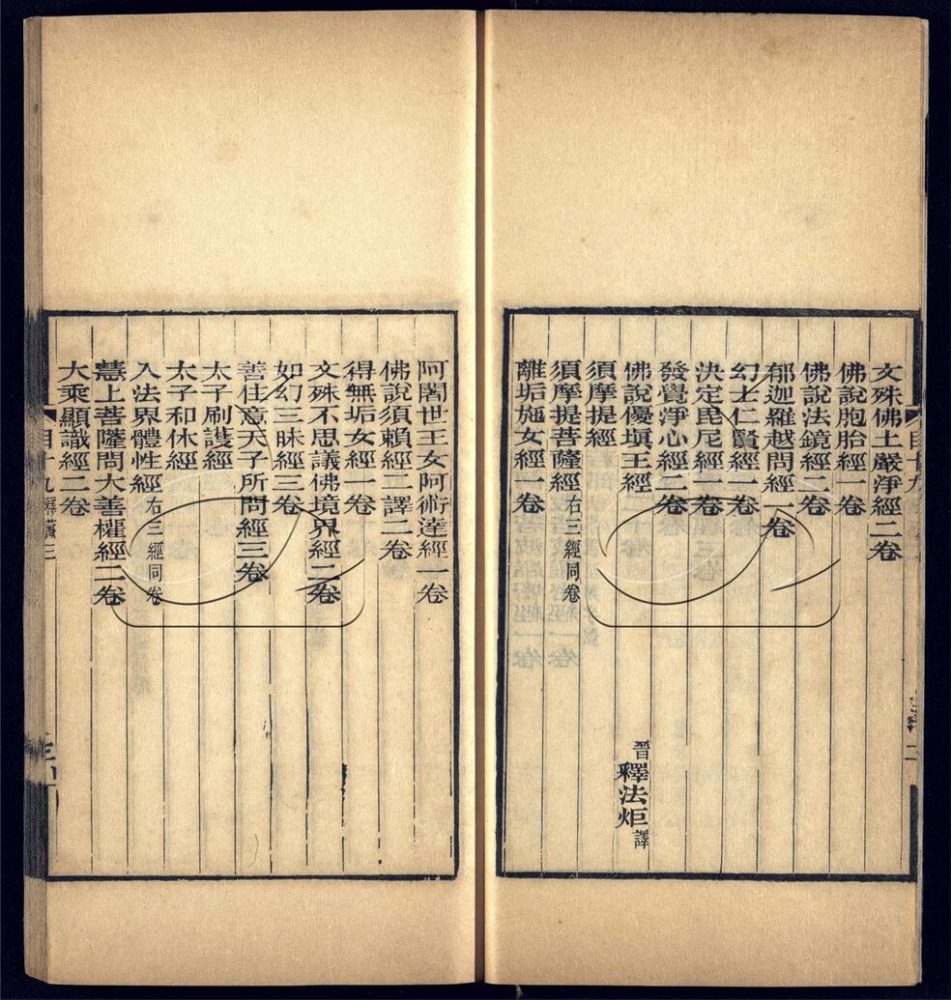 文殊佛土嚴淨經二卷
佛說胞胎經一卷
佛說法鏡經二卷
郁迦羅越問經一卷
幻士仁賢經一卷
決定毘尼經一卷
發覺淨心經二卷
佛說優塡王經 晉釋法炬譯
須摩提經
須摩提菩薩經 右三經同卷
離垢施女經一卷
阿闍世王女阿術達經一卷
佛說須賴經二譯二卷
得無垢女經一卷
文殊不思議佛境界經二卷
如幻三昧經三卷
善住意天子所問經三卷
太子刷護經
太子和休經
入法界體性經 右三經同卷
慧上菩薩問大善權經二卷
大乘顯識經二卷